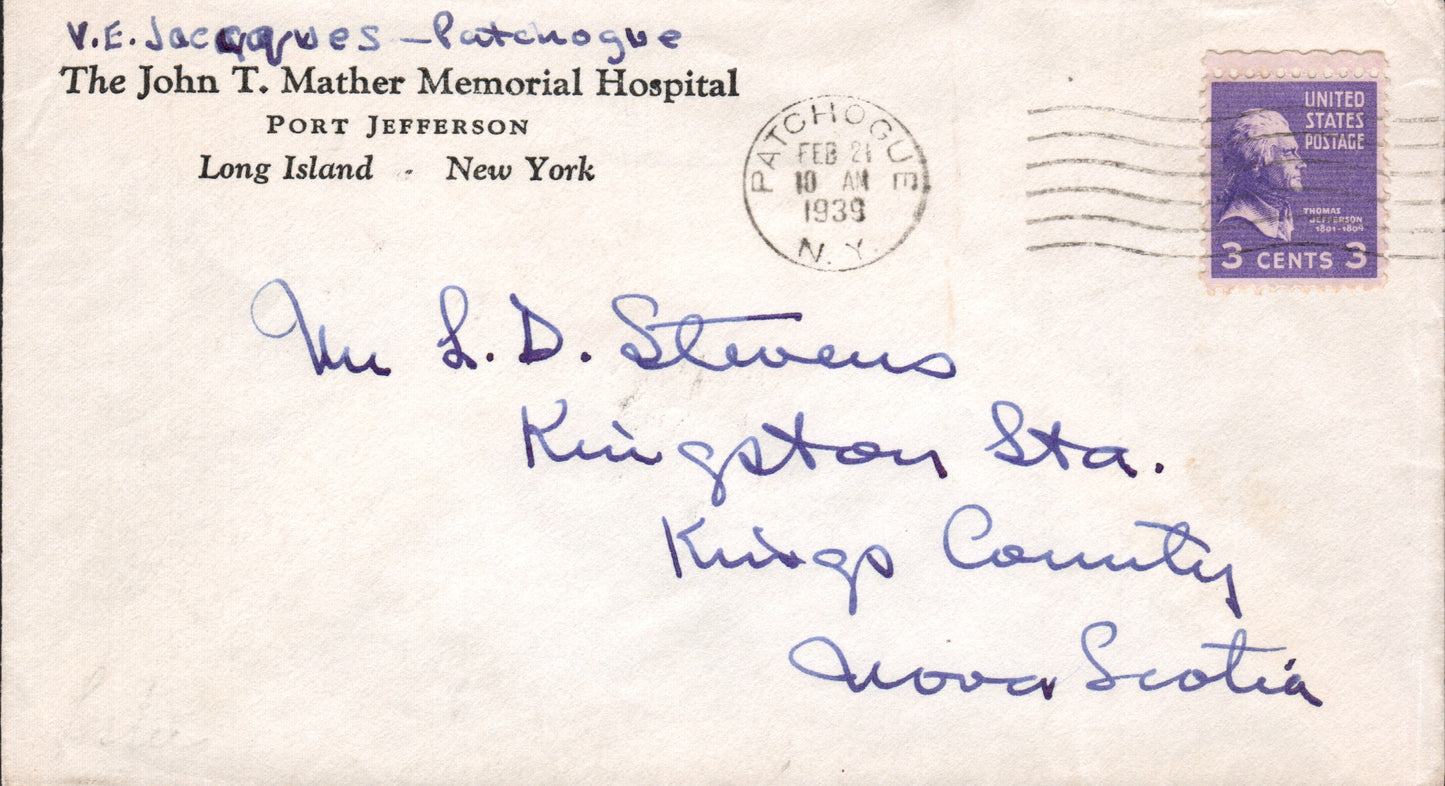 V.E. Jacques - Patchogue
The John T. Mather Memorial Hospital
PORT JEFFERSON
Long Island - New York
PATCHOGUE
FEB 21
10 AM
1939
N.Y.
UNITED
STATES
POSTAGE
THOMAS
JEFFERSON
1801-1809
3 CENTS 3
Mr L. D. Stevens
Kingston Sta.
Kings County
Nova Scotia